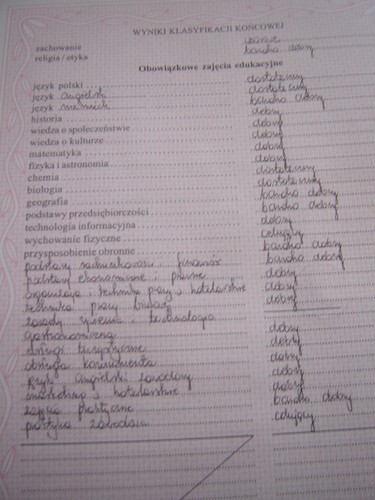 WYNIKI KLASYFIKACJI KOŃCOWEJ
zachowanie wzorowe
religia / etyka bardzo dobry
Obowiązkowe zajęcia edukacyjne
język polski dostateczny
język angielski dostateczny
język niemiecki bardzo dobry
historia dobry
wiedza o społeczeństwie dobry
wiedza o kulturze dobry
matematyka dobry
fizyka i astronomia dobry
chemia dostateczny
biologia dostateczny
geografia bardzo dobry
podstawy przedsiębiorczości bardzo dobry
technologia informacyjna dobry
wychowanie fizyczne celujący
przysposobienie obronne bardzo dobry
podstawy rachunkowości i finansów bardzo dobry
podstawy ekonomiczne i prawne dobry
organizacja i technika pracy w hotelarstwie dobry
technika pracy biurowej dobry
zasady żywienia i technologia
gastronomiczna dobry
usługi turystyczne dobry
obsługa konsumenta dobry
język angielski zawodowy dobry
marketing w hotelarstwie dobry
zajęcia praktyczne bardzo dobry
praktyka zawodowa celujący